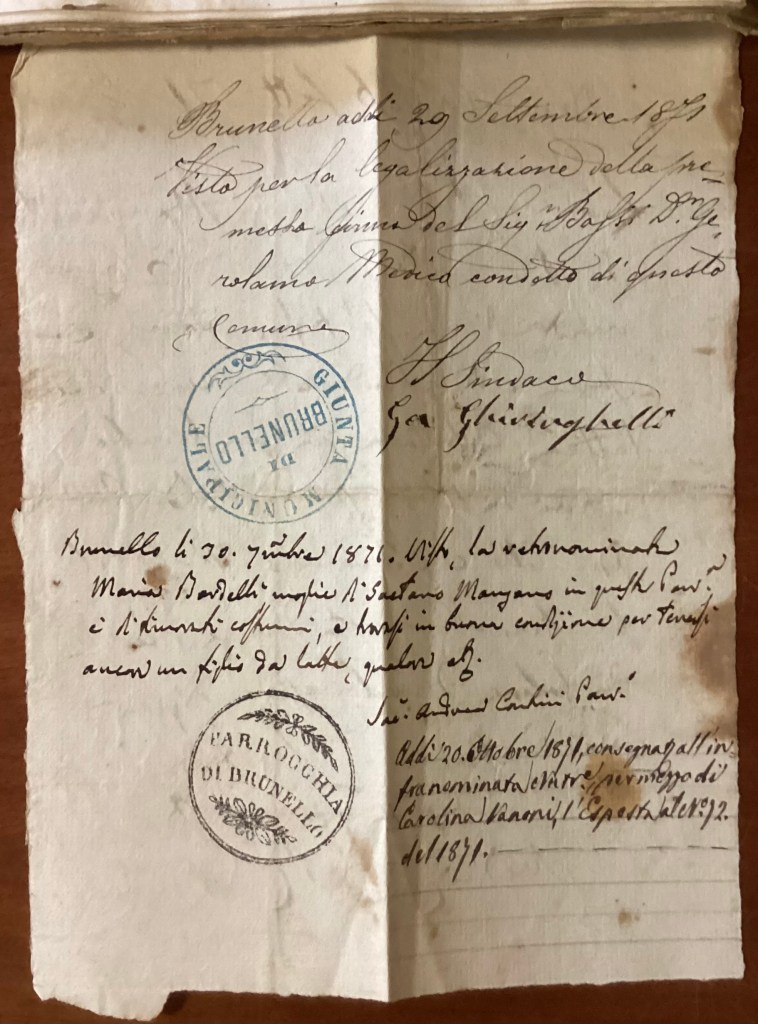 Brunello addì 29 Settembre 1871
Visto per la legalizzazione della pre=
messa firma del Sigr Bossi Dn Ge,
rolamo Medico condotto di questo
Comune
Il Sindaco
Ghiringhelli
GIUNTA MUNICIPALE
DI
BRUNELLO
Brunello li 30. 7mbre 1871. Visto, la retronominata
Maria Bardelli moglie di Gaetano Mangano in questa Parra
è di timorati costumi, e trovasi in buona condizione per tenersi
ancor un figlio da latte, qualora
Sac. Andrea Contini Parro
PARROCCHIA
DI BRUNELLO
Addì 20. Ottobre 1871, consegnata all'in-
franominata per mezzo di
Carolina Vanoni, l'Esposta al No. 72.
del 1871.